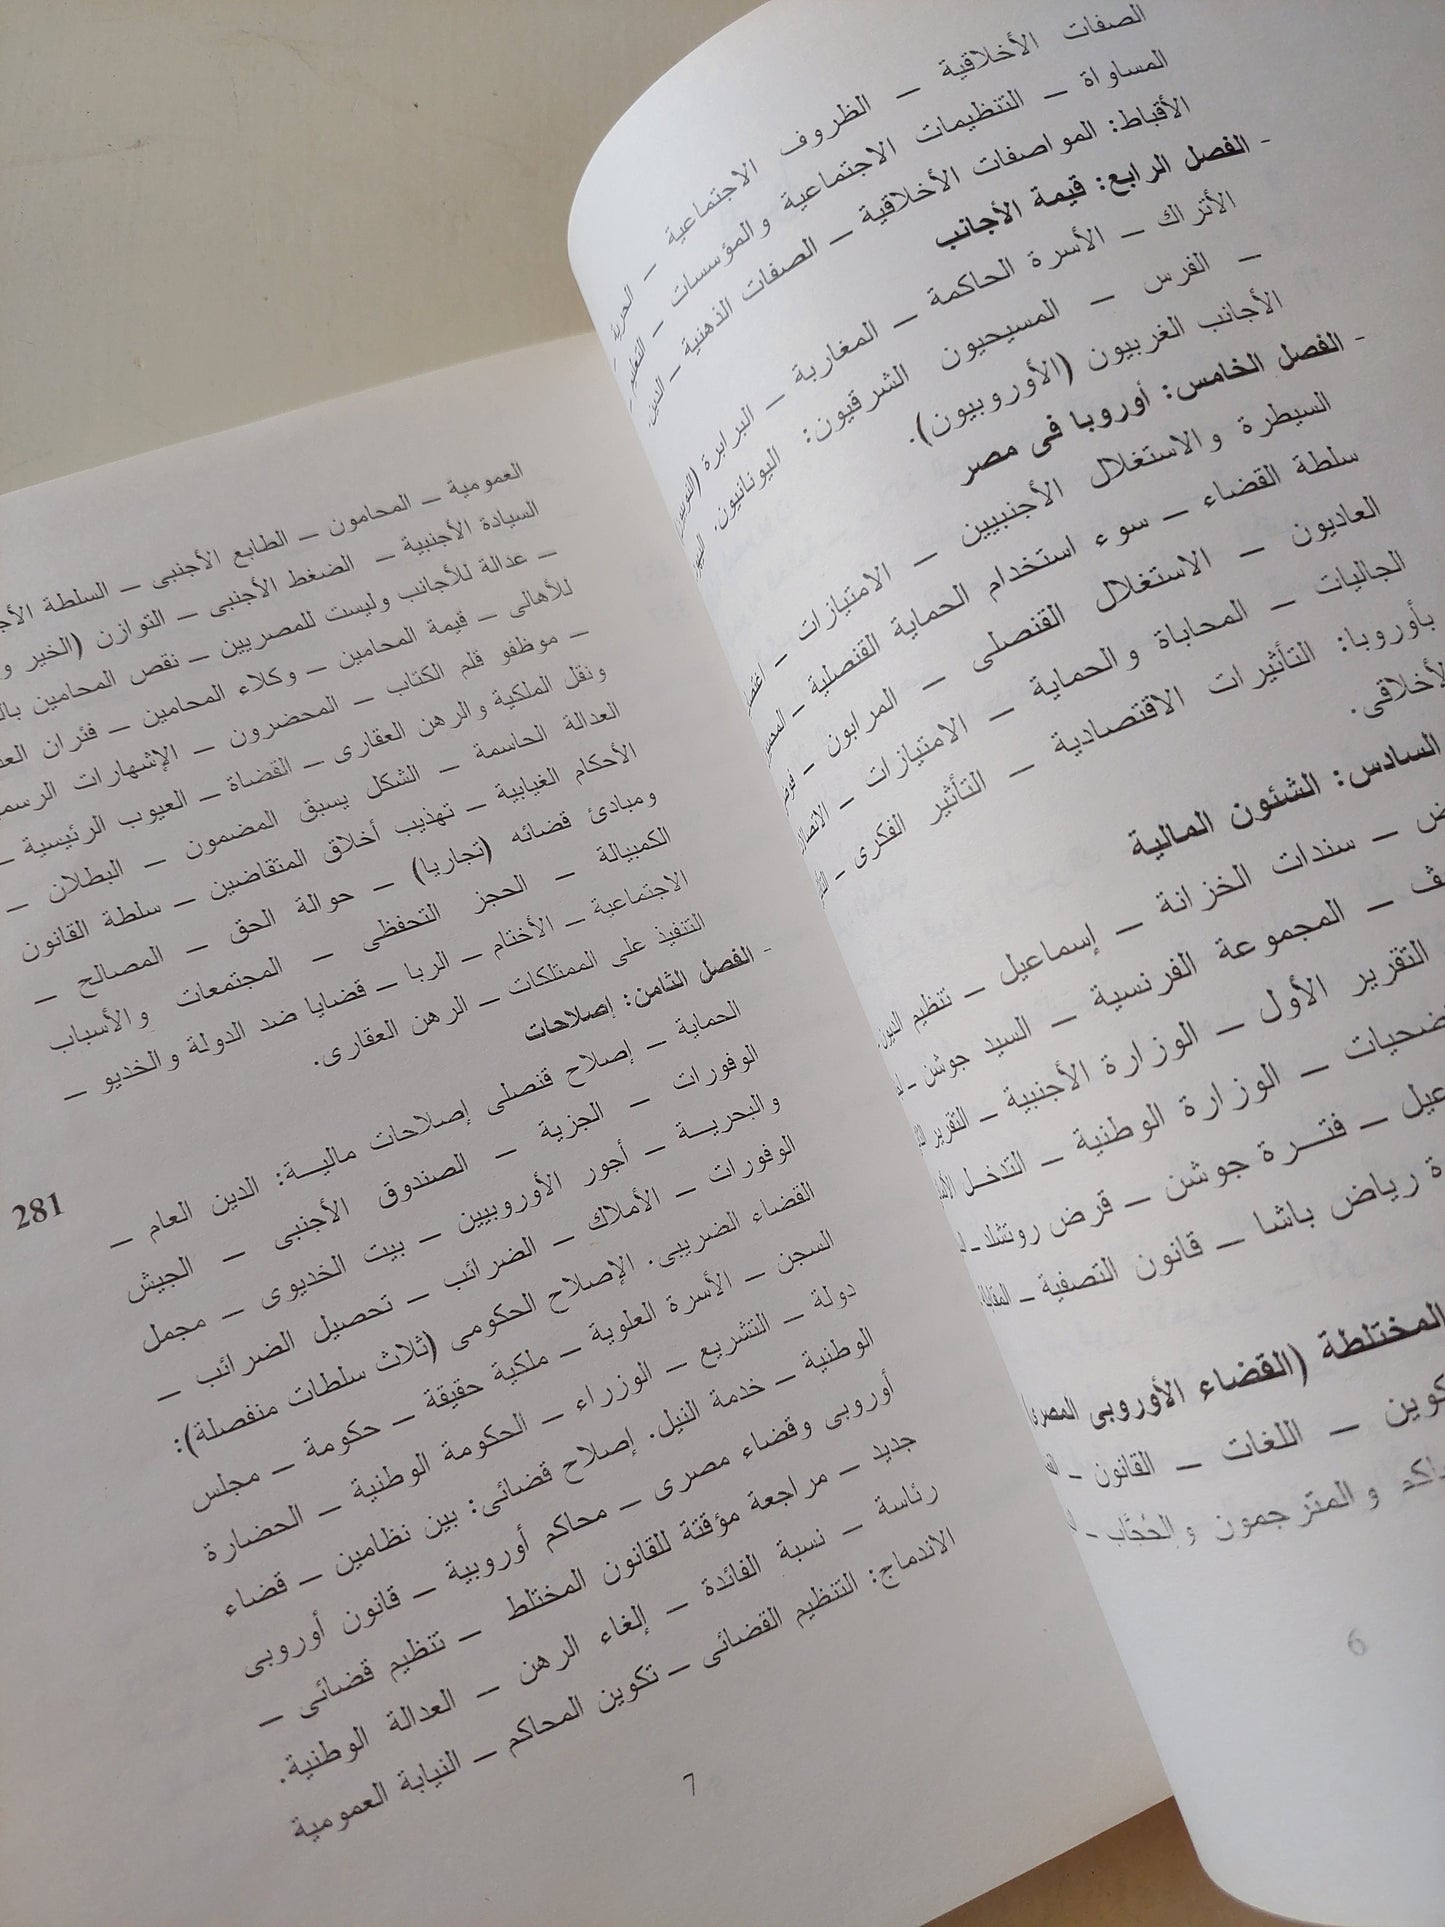 الصفات الأخلاقية – الظروف الاجتماعية – الحرية –
المساواة – التنظيمات الاجتماعية والمؤسسات – التعليم –
الأقباط: المواصفات الأخلاقية – الصفات الذهنية – الدين.
- الفصل الرابع: قيمة الأجانب
الأتراك – الأسرة الحاكمة – المغاربة – البرابرة
– الفرس – المسيحيون الشرقيون: اليونانيون.
الأجانب الغربيون (الأوروبيون).
- الفصل الخامس: أوروبا فى مصر
السيطرة والاستغلال الأجنبيين – الامتيازات –
سلطة القضاء – سوء استخدام الحماية القنصلية –
العاديون – الاستغلال القنصلى – المرابون –
الجاليات – المحاباة والحماية – الامتيازات –
بأوروبا: التأثيرات الاقتصادية – التأثير الفكرى –
الأخلاقى.
السادس: الشئون المالية
– سندات الخزانة – إسماعيل – تنظيم الديون
– المجموعة الفرنسية – السيد جوشن –
التقرير الأول – الوزارة الأجنبية – التقرير
– الوزارة الوطنية – التدخل
– فترة جوشن – قرض روتشلد –
رياض باشا – قانون التصفية –
المختلطة (القضاء الأوروبى المصرى
– اللغات – القانون –
والمترجمون والحُجَّاب –
6
العمومية – المحامون – الطابع الأجنبى – السلطة
السيادة الأجنبية – الضغط الأجنبى – التوازن (الخير
– عدالة للأجانب وليست للمصريين – نقص المحامين
للأهالى – قيمة المحامين – وكلاء المحامين – فئران
– موظفو قلم الكتاب – المحضرون – الإشهارات
ونقل الملكية والرهن العقارى – القضاة – العيوب الرئيسية –
العدالة الحاسمة – الشكل يسبق المضمون – البطلان –
الأحكام الغيابية – تهذيب أخلاق المتقاضين – سلطة القانون
ومبادئ قضائه (تجاريا) – حوالة الحق – المصالح –
الكمبيالة – الحجز التحفظى – المجتمعات والأسباب
الاجتماعية – الأختام – الربا – قضايا ضد الدولة والخديو –
التنفيذ على الممتلكات – الرهن العقارى.
- الفصل الثامن: إصلاحات 281
الحماية – إصلاح قنصلى إصلاحات مالية: الدين العام –
الوفورات – الجزية – الصندوق الأجنبى – الجيش
والبحرية – أجور الأوروبيين – بيت الخديوى – مجمل
الوفورات – الأملاك – الضرائب – تحصيل الضرائب –
القضاء الضريبى. الإصلاح الحكومى (ثلاث سلطات منفصلة):
السجن – الأسرة العلوية – ملكية حقيقة – حكومة – مجلس
دولة – التشريع – الوزراء – الحكومة الوطنية – الحضارة
الوطنية – خدمة النيل. إصلاح قضائى: بين نظامين – قضاء
أوروبى وقضاء مصرى – محاكم أوروبية – قانون أوروبى
جديد – مراجعة مؤقتة للقانون المختلط – تنظيم قضائى –
رئاسة – نسبة الفائدة – إلغاء الرهن – العدالة الوطنية.
الاندماج: التنظيم القضائى – تكوين المحاكم – النيابة العمومية
7